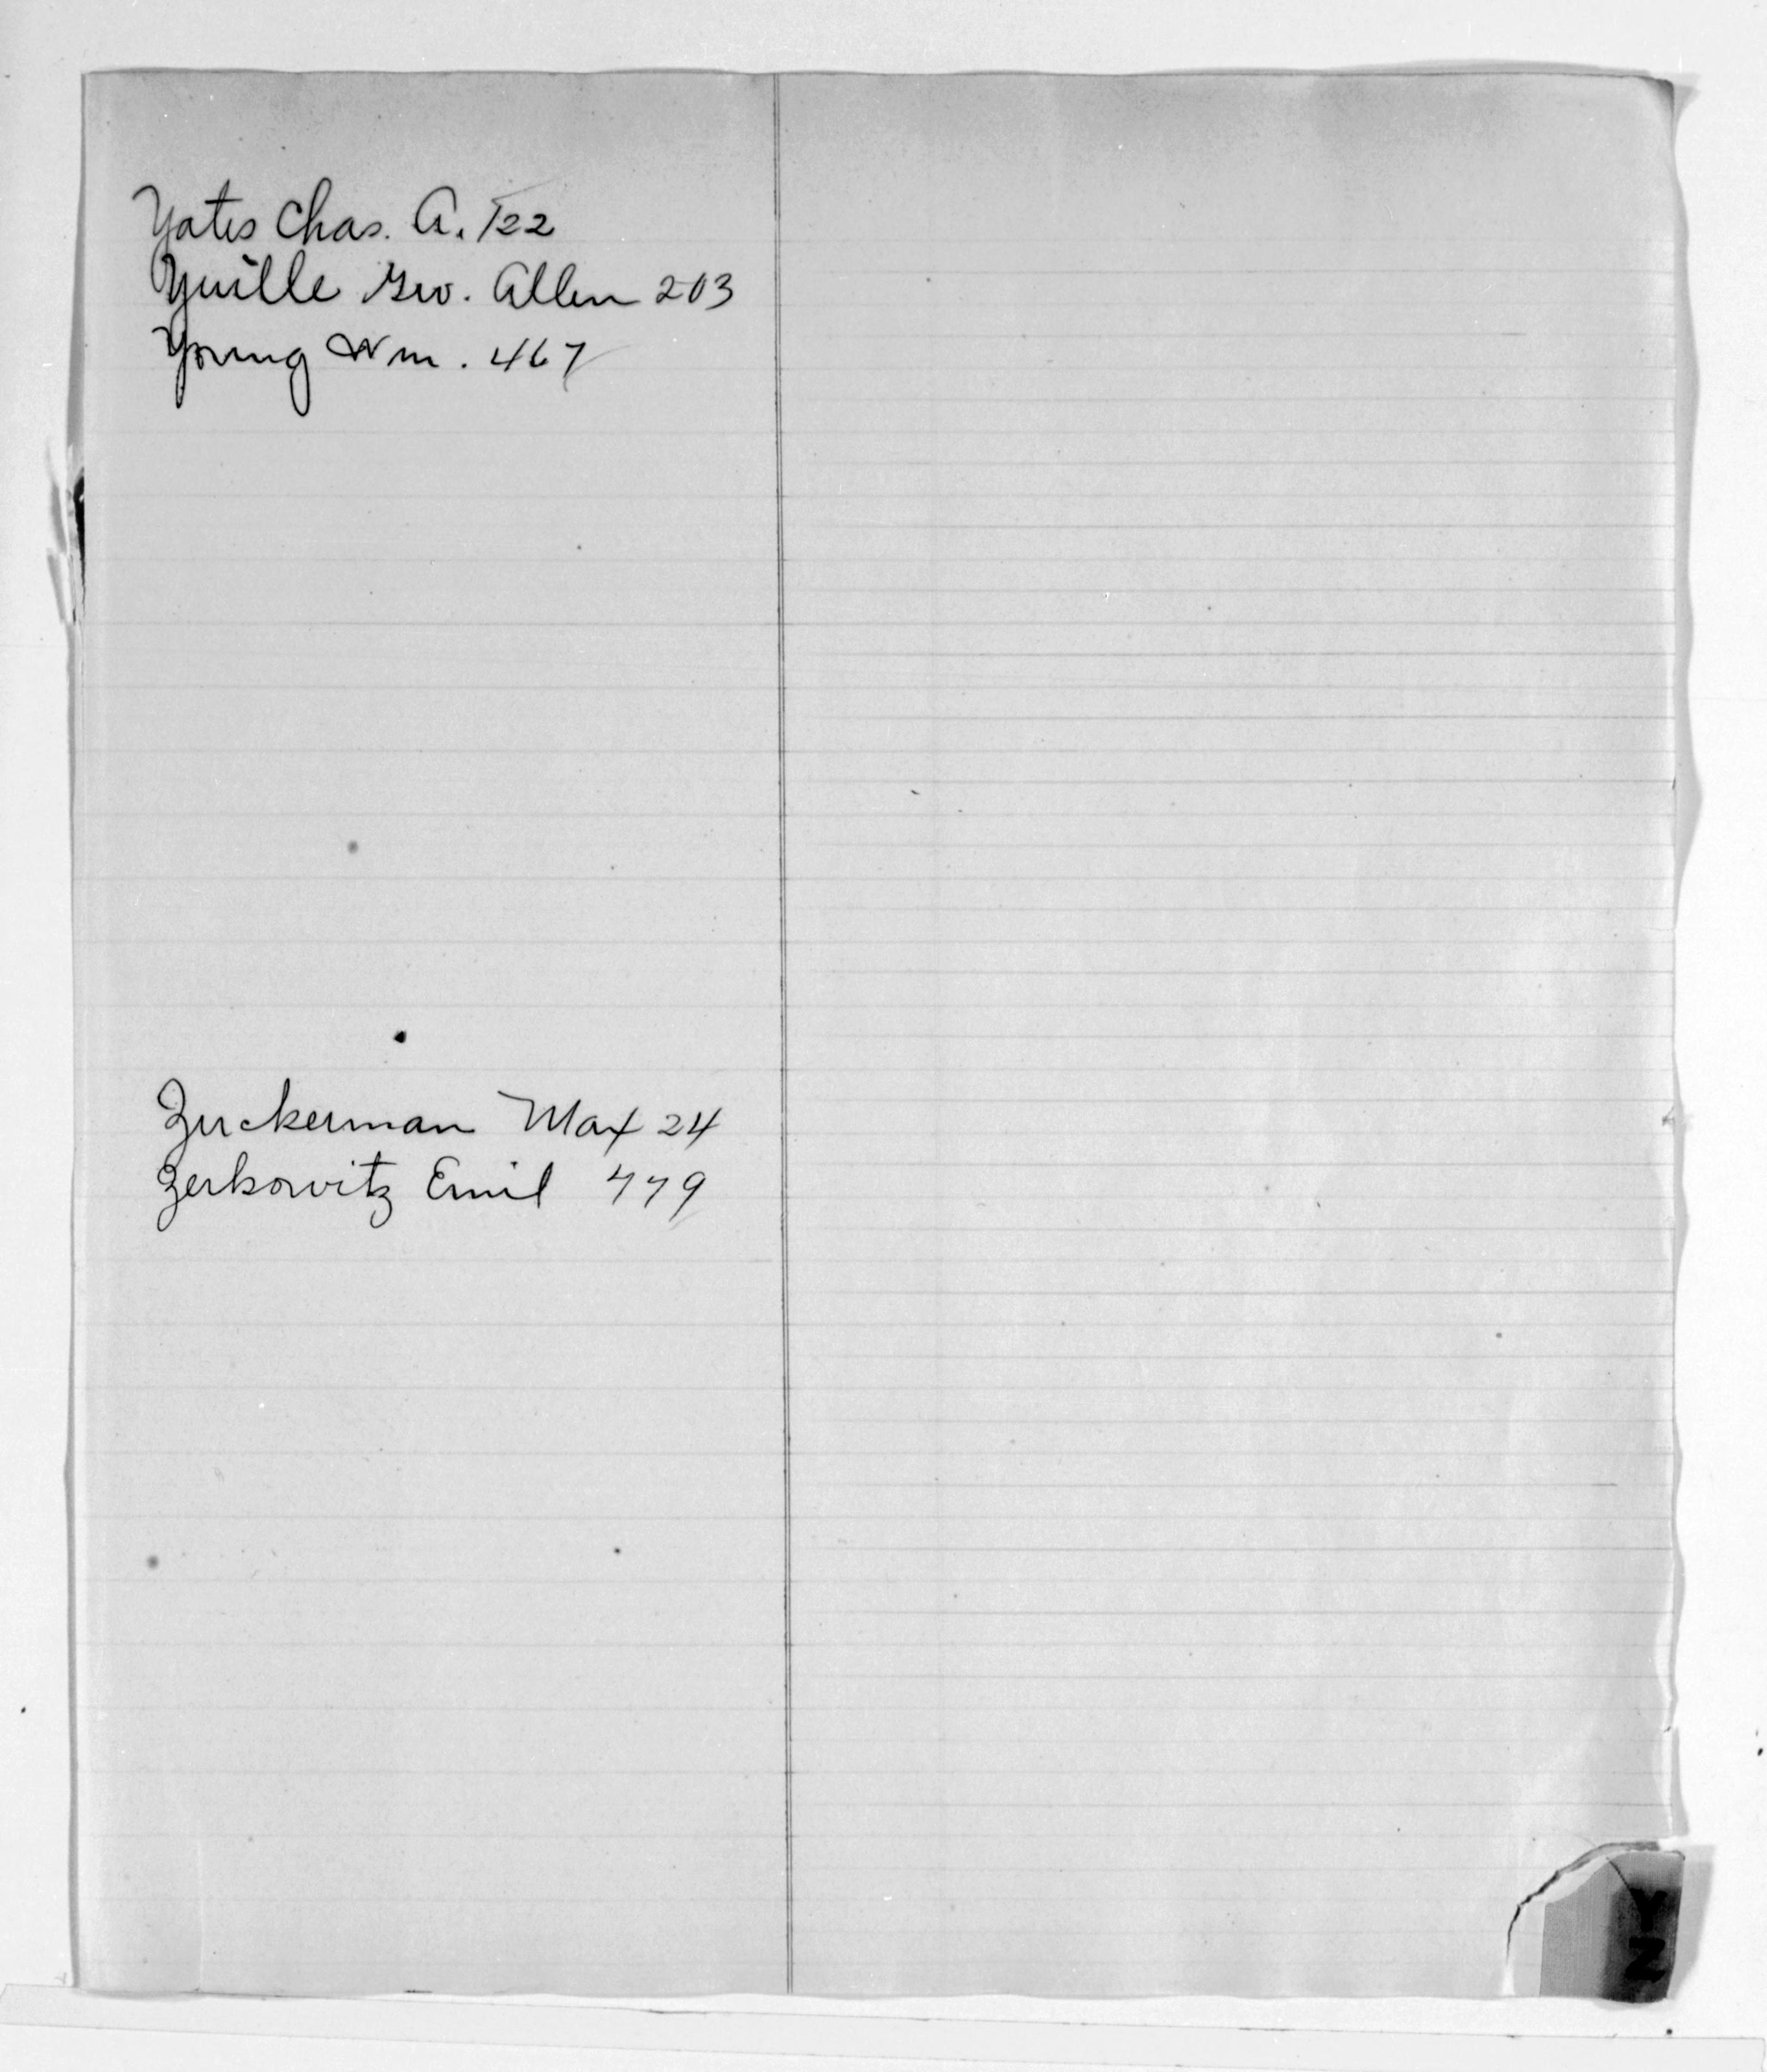 Yates Chas. A. 122
Yuille Geo. Allen 203
Young Wm. 467
Zuckerman Max 24
Zerkowitz Emil 479
Y
Z